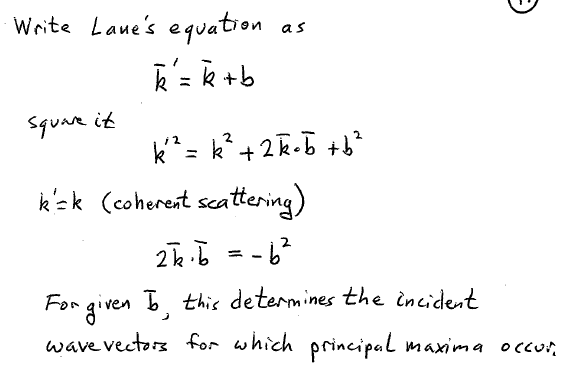 Write Laue's equation as
k̄' = k̄ + b
square it
k'² = k² + 2k̄·b̄ + b²
k'=k (coherent scattering)
2k̄·b̄ = -b²
For given b̄, this determines the incident
wave vectors for which principal maxima occur.